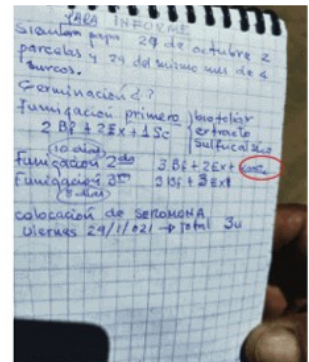 PARA INFORME
Siembra papa 24 de octubre 2
parcelas y 29 del mismo mes de 4
surcos.
Germinación ¿?
Fumigación primero } biofoliar
extracto
2 Bf + 2Ex + 1Sc
(10 días)
Fumigación 2da 3 Bf + 2Ex +
Fumigación 3ra 3 Bf + 3 Ex
(8 días)
colocación de
viernes 29/1/021 → total 3u